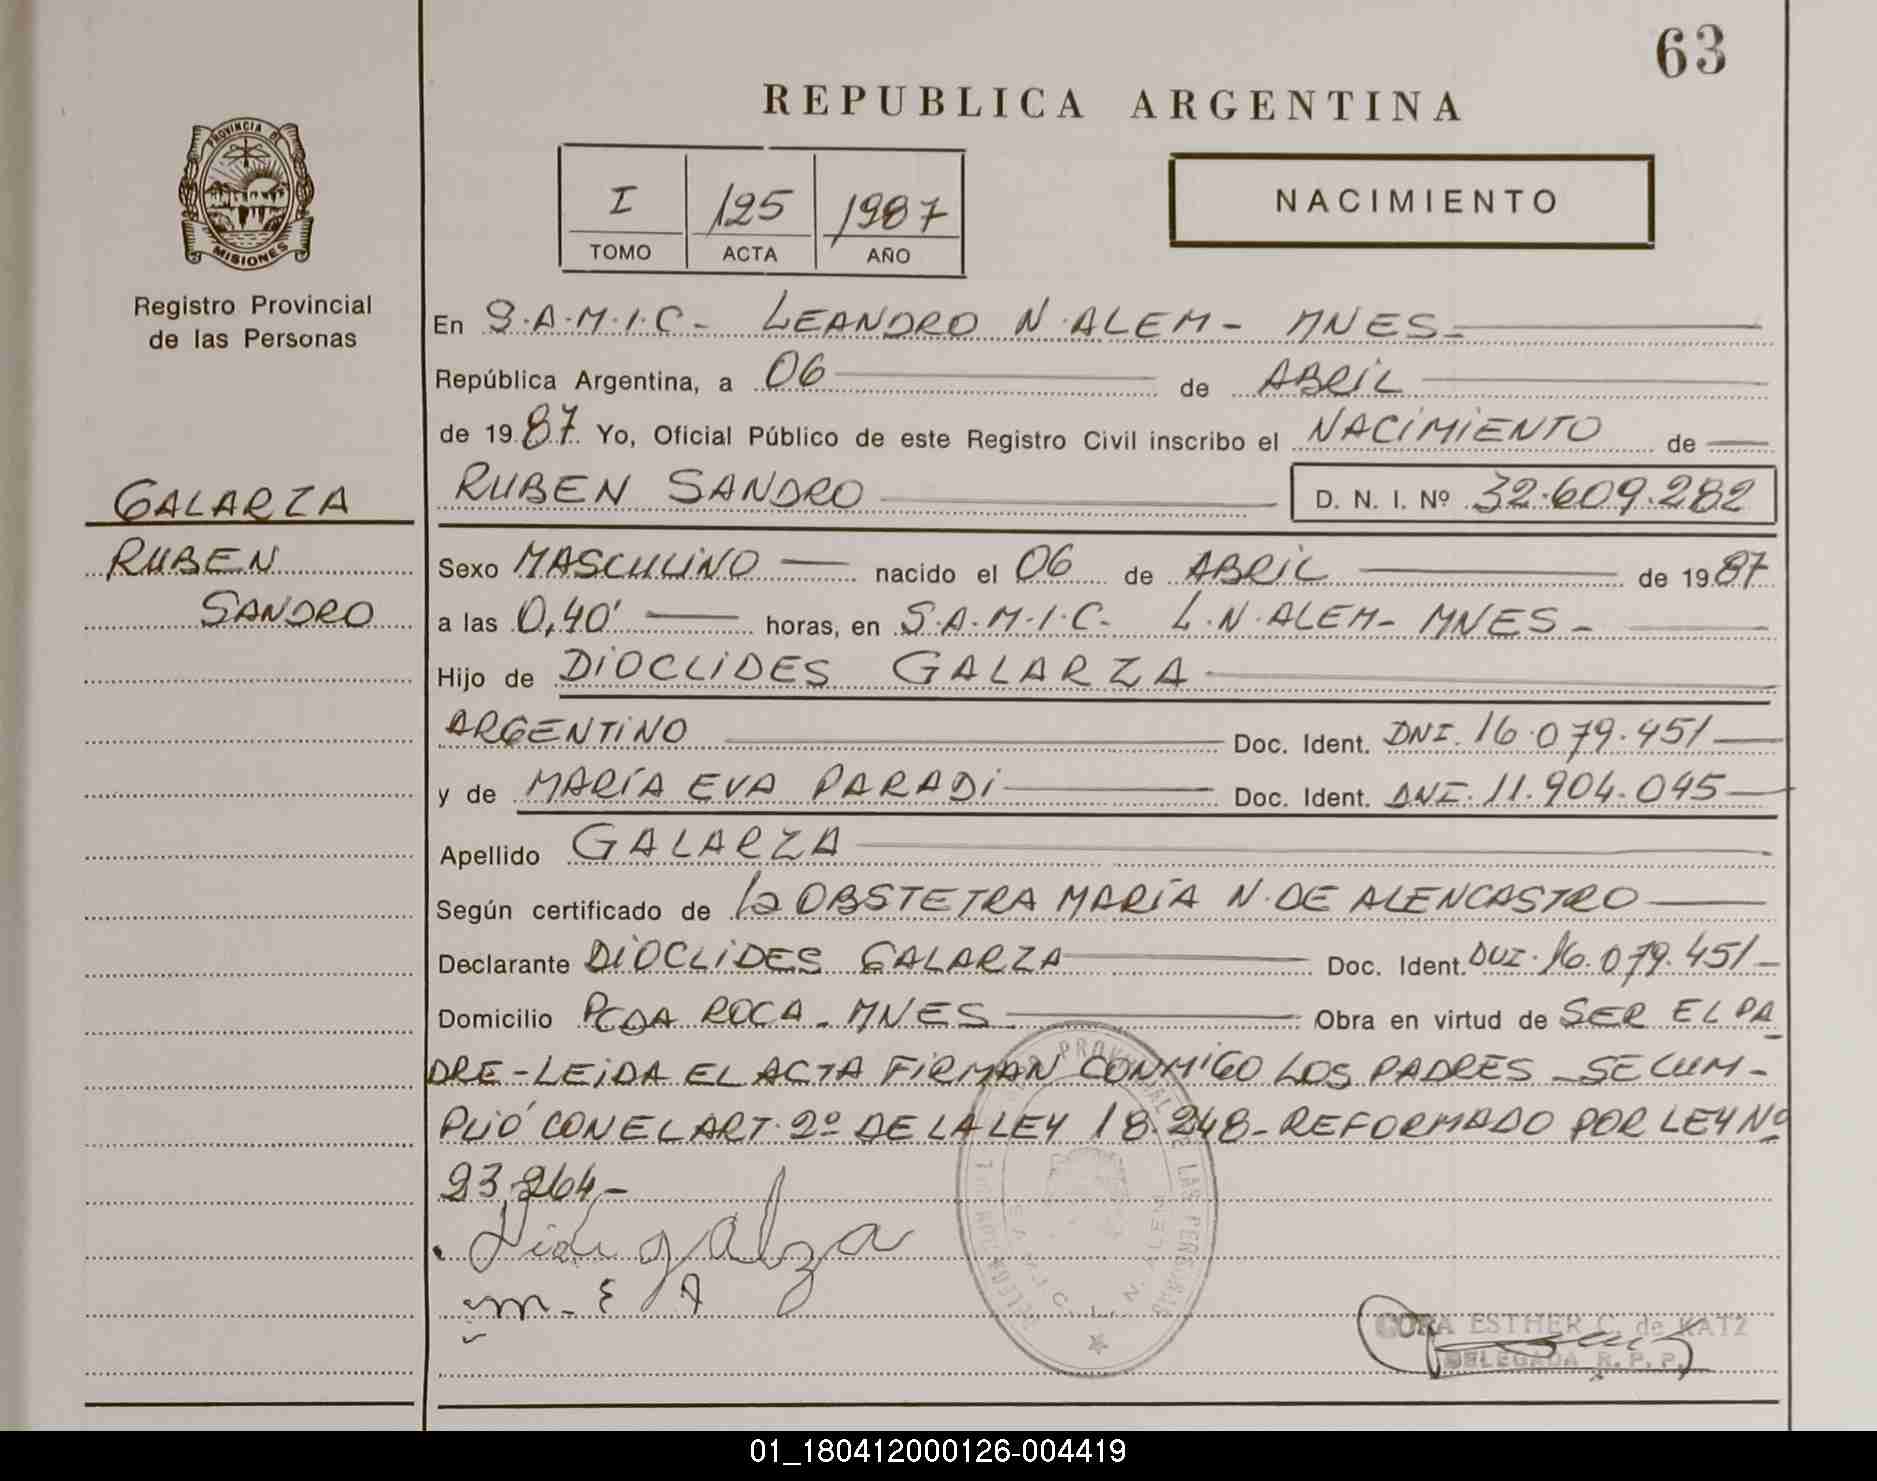 63
REPUBLICA ARGENTINA
PROVINCIA DE
MISIONES
Registro Provincial
de las Personas
I 125 1987
TOMO ACTA AÑO
NACIMIENTO
En S.A.M.I.C- LEANDRO N. ALEM- MNES-
República Argentina, a 06 de ABRIL
de 1987 Yo, Oficial Público de este Registro Civil inscribo el NACIMIENTO de
RUBEN SANDRO D. N. I. Nº 32.609.282
GALARZA
RUBEN
SANDRO
Sexo MASCULINO nacido el 06 de ABRIL de 1987
a las 0,40' horas, en S.A.M.I.C- L.N. ALEM- MNES-
Hijo de DIOCLIDES GALARZA
ARGENTINO Doc. Ident. DNI. 16.079.451
y de MARÍA EVA PARADI Doc. Ident. DNI. 11.904.045
Apellido GALARZA
Según certificado de la OBSTETRA MARÍA N. DE ALENCASTRO
Declarante DIOCLIDES GALARZA Doc. Ident. DNI. 16.079.451-
Domicilio PCDA ROCA- MNES Obra en virtud de SER EL PA
DRE-LEIDA EL ACTA FIRMAN CONMIGO LOS PADRES-SE CUM-
PLIÓ CON EL ART. 2º DE LA LEY 18.248-REFORMADO POR LEY Nº
23.264-
m-E
CORA ESTHER C. de KATZ
DELEGADA R. P. P.
01_180412000126-004419